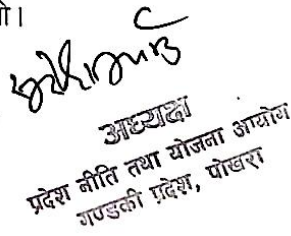 यो।
अध्यक्ष
प्रदेश नीति तथा योजना आयोग
गण्डकी प्रदेश, पोखरा